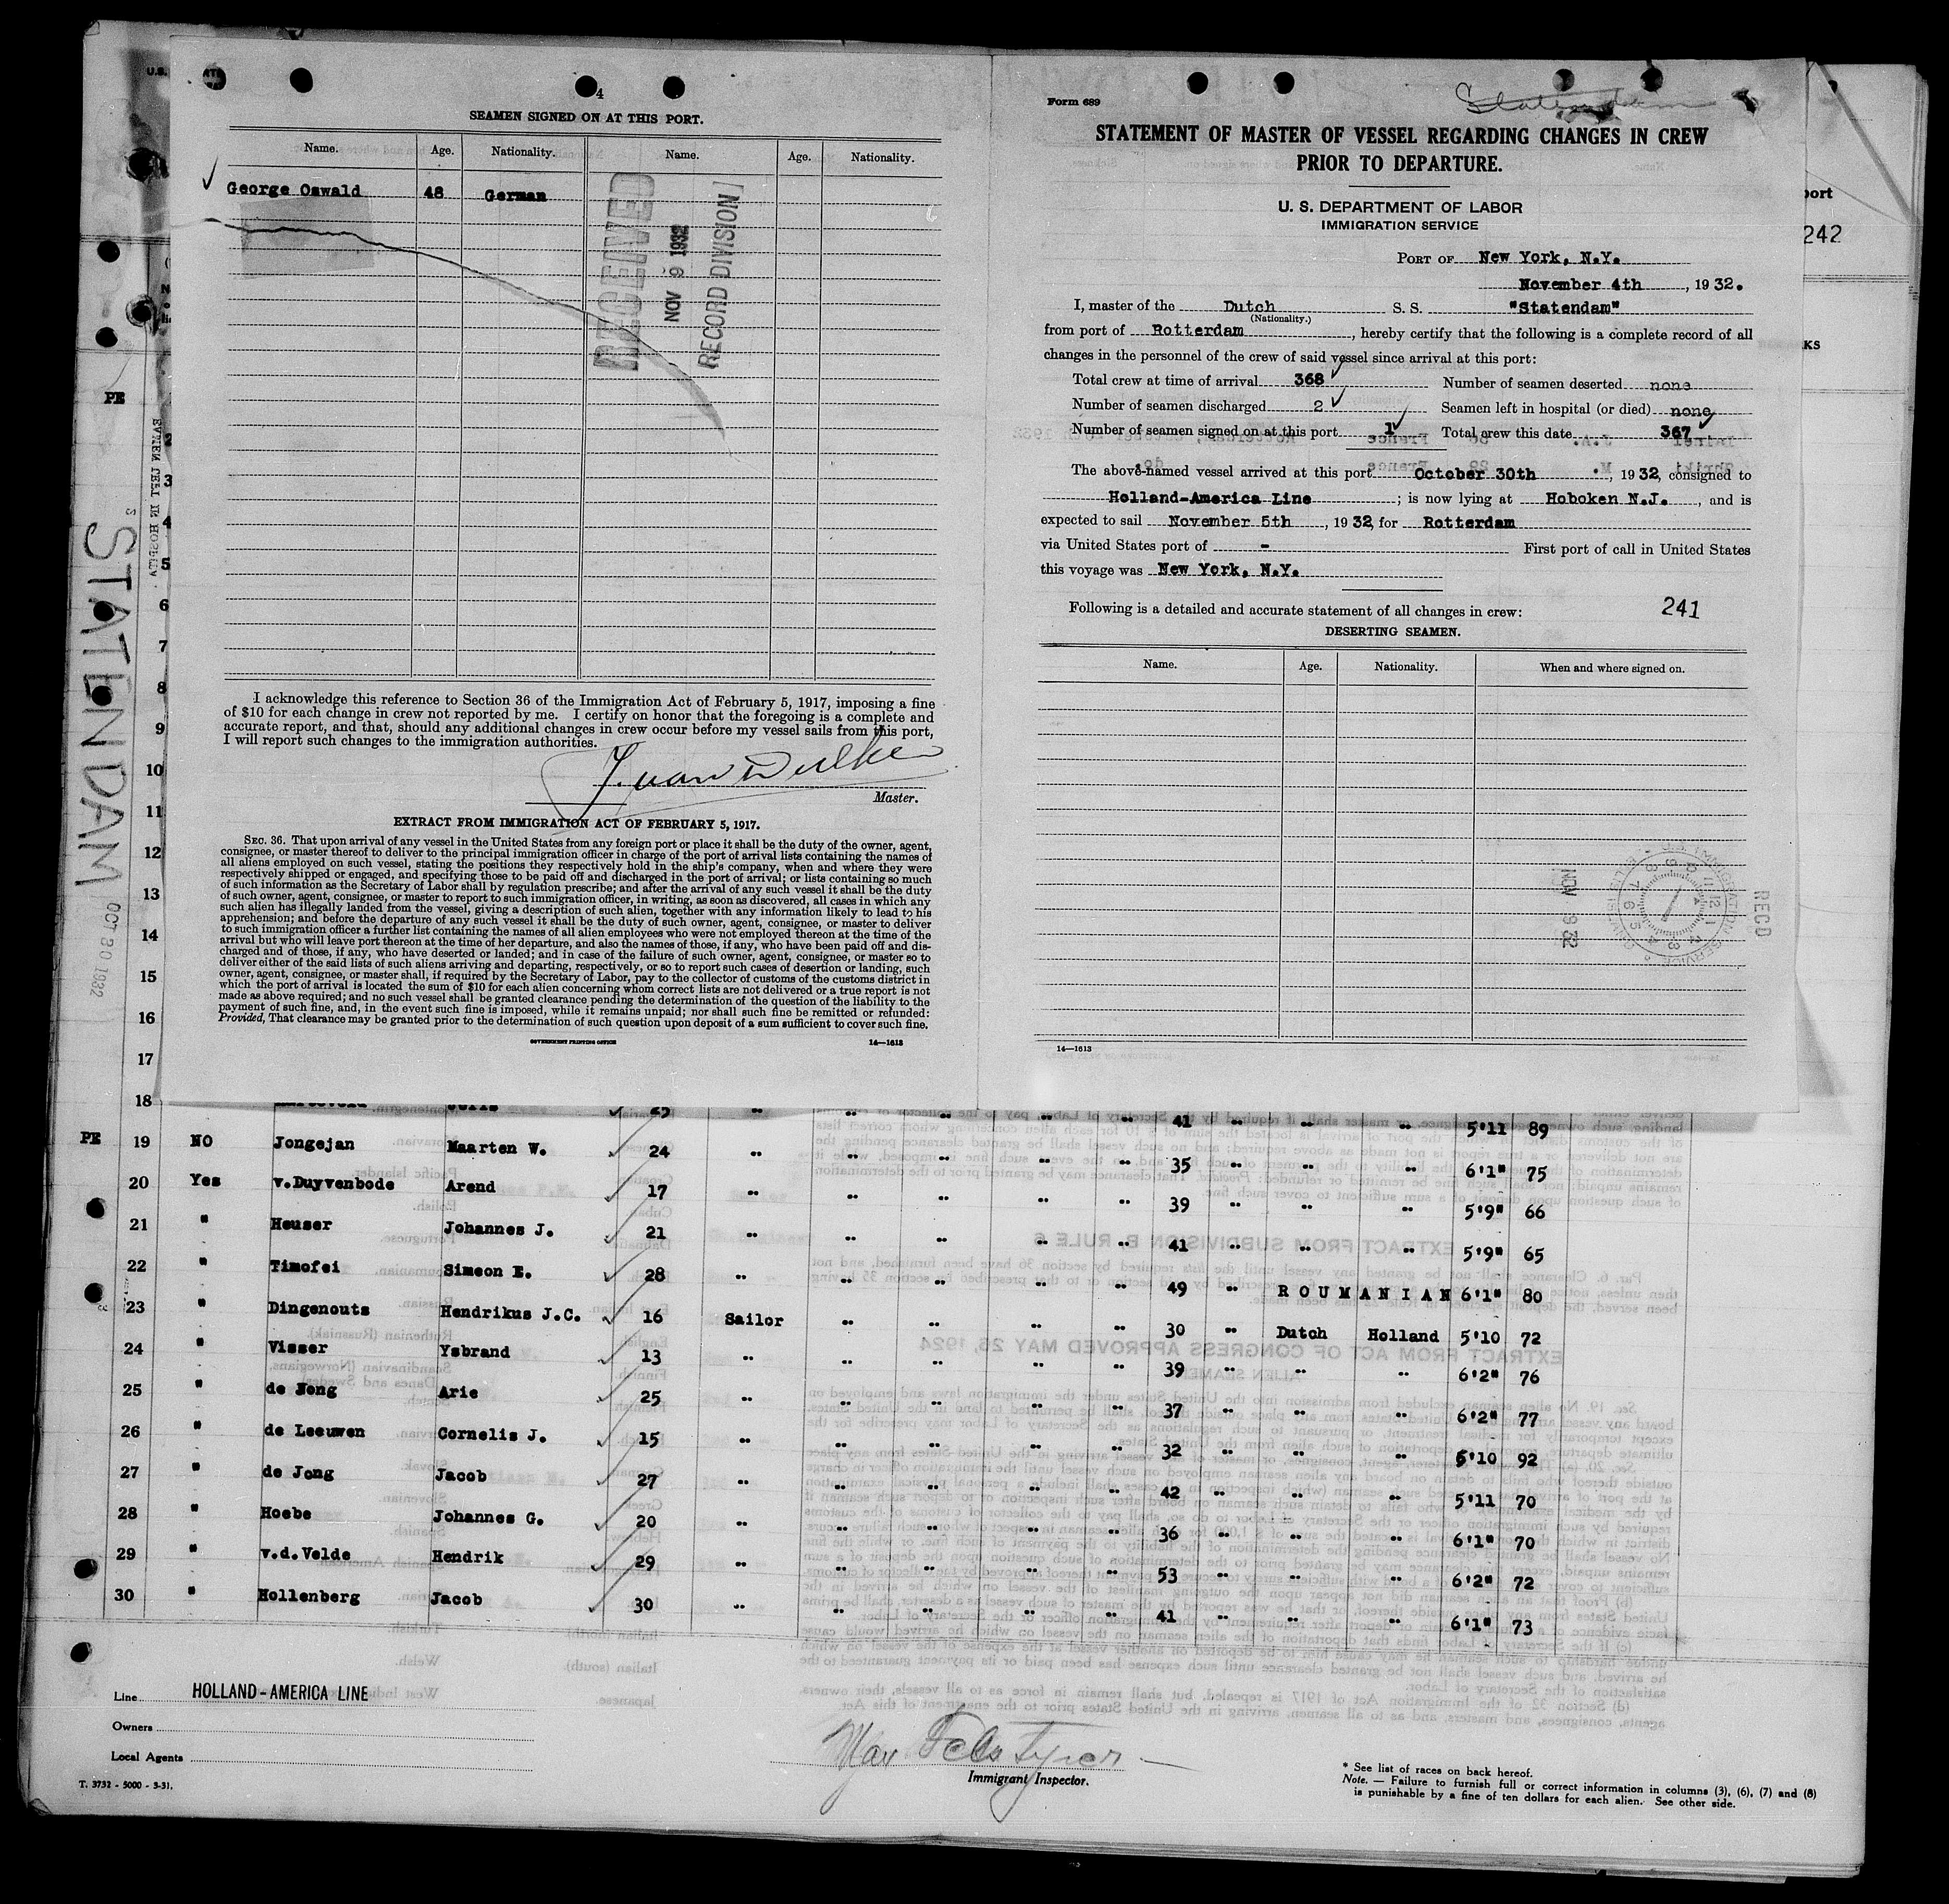 4
SEAMEN SIGNED ON AT THIS PORT.
Name. Age. Nationality. Name. Age. Nationality.
George Oswald 48 German
RECEIVED
NOV 9 1932
RECORD DIVISION
I acknowledge this reference to Section 36 of the Immigration Act of February 5, 1917, imposing a fine
of $10 for each change in crew not reported by me. I certify on honor that the foregoing is a complete and
accurate report, and that, should any additional changes in crew occur before my vessel sails from this port,
I will report such changes to the immigration authorities.
Master.
EXTRACT FROM IMMIGRATION ACT OF FEBRUARY 5, 1917.
SEC. 36. That upon arrival of any vessel in the United States from any foreign port or place it shall be the duty of the owner, agent,
consignee, or master thereof to deliver to the principal immigration officer in charge of the port of arrival lists containing the names of
all aliens employed on such vessel, stating the positions they respectively hold in the ship's company, when and where they were
respectively shipped or engaged, and specifying those to be paid off and discharged in the port of arrival; or lists containing so much
of such information as the Secretary of Labor shall by regulation prescribe; and after the arrival of any such vessel it shall be the duty
of such owner, agent, consignee, or master to report to such immigration officer, in writing, as soon as discovered, all cases in which any
such alien has illegally landed from the vessel, giving a description of such alien, together with any information likely to lead to his
apprehension; and before the departure of any such vessel it shall be the duty of such owner, agent, consignee, or master to deliver
to such immigration officer a further list containing the names of all alien employees who were not employed thereon at the time of the
arrival but who will leave port thereon at the time of her departure, and also the names of those, if any, who have been paid off and dis-
charged and of those, if any, who have deserted or landed; and in case of the failure of such owner, agent, consignee, or master so to
deliver either of the said lists of such aliens arriving and departing, respectively, or so to report such cases of desertion or landing, such
owner, agent, consignee, or master shall, if required by the Secretary of Labor, pay to the collector of customs of the customs district in
which the port of arrival is located the sum of $10 for each alien concerning whom correct lists are not delivered or a true report is not
made as above required; and no such vessel shall be granted clearance pending the determination of the question of the liability to the
payment of such fine, and, in the event such fine is imposed, while it remains unpaid; nor shall such fine be remitted or refunded:
Provided, That clearance may be granted prior to the determination of such question upon deposit of a sum sufficient to cover such fine.
GOVERNMENT PRINTING OFFICE 14—1613
Form 689
Statendam
STATEMENT OF MASTER OF VESSEL REGARDING CHANGES IN CREW
PRIOR TO DEPARTURE.
U. S. DEPARTMENT OF LABOR
IMMIGRATION SERVICE
PORT OF New York, N.Y.
November 4th, 1932.
I, master of the Dutch S. S. "Statendam"
(Nationality.)
from port of Rotterdam, hereby certify that the following is a complete record of all
changes in the personnel of the crew of said vessel since arrival at this port:
Total crew at time of arrival 368 Number of seamen deserted none
Number of seamen discharged 2 Seamen left in hospital (or died) none
Number of seamen signed on at this port 1 Total crew this date 367
The above-named vessel arrived at this port October 30th, 1932, consigned to
Holland-America Line; is now lying at Hoboken N.J., and is
expected to sail November 5th, 1932, for Rotterdam
via United States port of - First port of call in United States
this voyage was New York, N.Y.
Following is a detailed and accurate statement of all changes in crew: 241
DESERTING SEAMEN.
Name. Age. Nationality. When and where signed on.
NOV 9 32
RECD
14—1613
port
242
KS
PE
STATENDAM
OCT 30 1932
3
4
5
6
7
8
9
10
11
12
13
14
15
16
17
18 " " " " " 41 " " " 5'11 89
PE 19 NO Jongejan Maarten W. 24 " " " " " 35 " " " 6'1" 75
20 Yes v.Duyvenbode Arend 17 " " " " " 39 " " " 5'9" 66
21 " Heuser Johannes J. 21 " " " " " 41 " " " 5'9" 65
22 " Timofei Simeon E. 28 " " " " " 49 " ROUMANIAN 6'1" 80
23 " Dingenouts Hendrikus J.C. 16 Sailor " " " " 30 " Dutch Holland 5'10 72
24 " Visser Ysbrand 13 " " " " " 39 " " " 6'2" 76
25 " de Jong Arie 25 " " " " " 37 " " " 6'2" 77
26 " de Leeuwen Cornelis J. 15 " " " " " 32 " " " 5'10 92
27 " de Jong Jacob 27 " " " " " 42 " " " 5'11 70
28 " Hoebe Johannes G. 20 " " " " " 36 " " " 6'1" 70
29 " v.d.Velde Hendrik 29 " " " " " 53 " " " 6'2" 72
30 " Hollenberg Jacob 30 " " " " " 41 " " " 6'1" 73
Line HOLLAND-AMERICA LINE
Owners
Local Agents
T. 3732 - 5000 - 3-31.
Immigrant Inspector.
* See list of races on back hereof.
Note. — Failure to furnish full or correct information in columns (3), (6), (7) and (8)
is punishable by a fine of ten dollars for each alien. See other side.